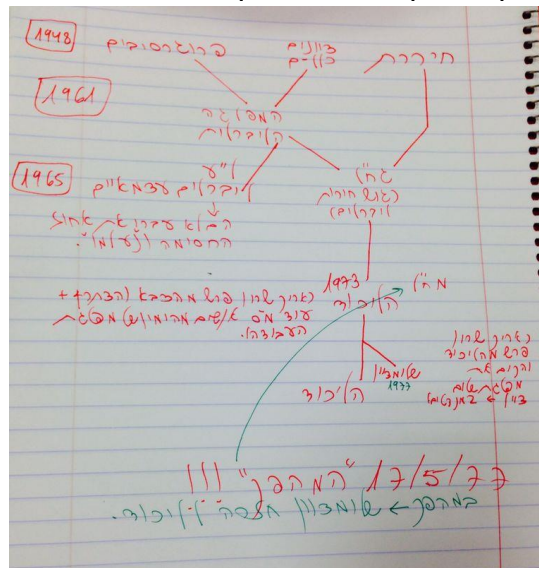 1948
פרוגרסיבים
ציונים
כללים
חירות
1961
המפלגה
הליברלית
1965
ל"ע
ליברלים עצמאיים
הם לא עברו את אחוז
החסימה ונעלמו.
גח"ל
(גוש חירות
ליברלים)
1973
הליכוד
מח"ל
(אריק שרון פרש מהצבא והצטרף +
עוד מס' אנשים מהימין של מפלגת
העבודה).
הליכוד
שלומציון
1977
(אריק שרון
פרש מהליכוד
והקים את
מפלגת שלום
ציון ← 2 מנדטים)
17/5/77 "המהפך" !!!
במהפך ← שלומציון חזרה לליכוד.